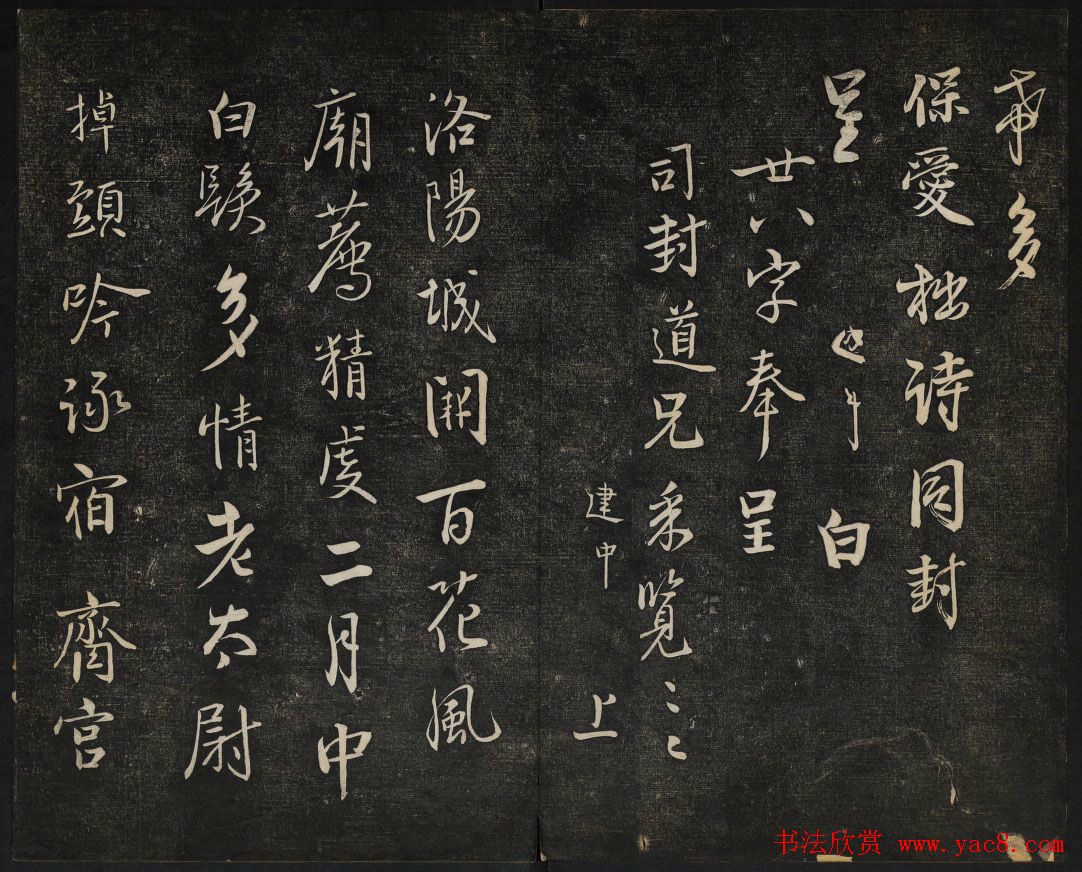 多
保愛拙詩同封
呈 建中 白
廿八字奉呈
司封道兄采覽
建中 上
洛陽城開百花風
廟薦精虔二月中
白鬚多情老太尉
掉頭吟諑宿齋宮
书法欣赏 www.yac8.com